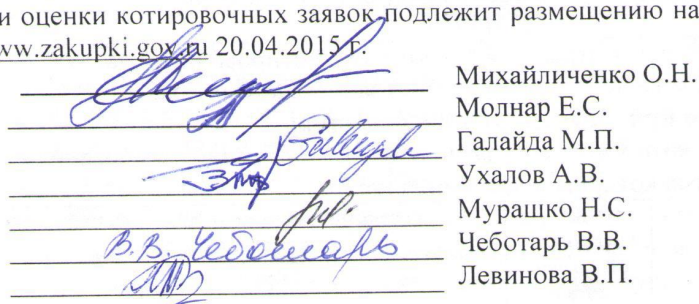 и оценки котировочных заявок подлежит размещению на
ww.zakupki.gov.ru 20.04.2015 г.
Михайличенко О.Н.
Молнар Е.С.
Галайда М.П.
Ухалов А.В.
Мурашко Н.С.
В.В. Чеботарь Чеботарь В.В.
Левинова В.П.